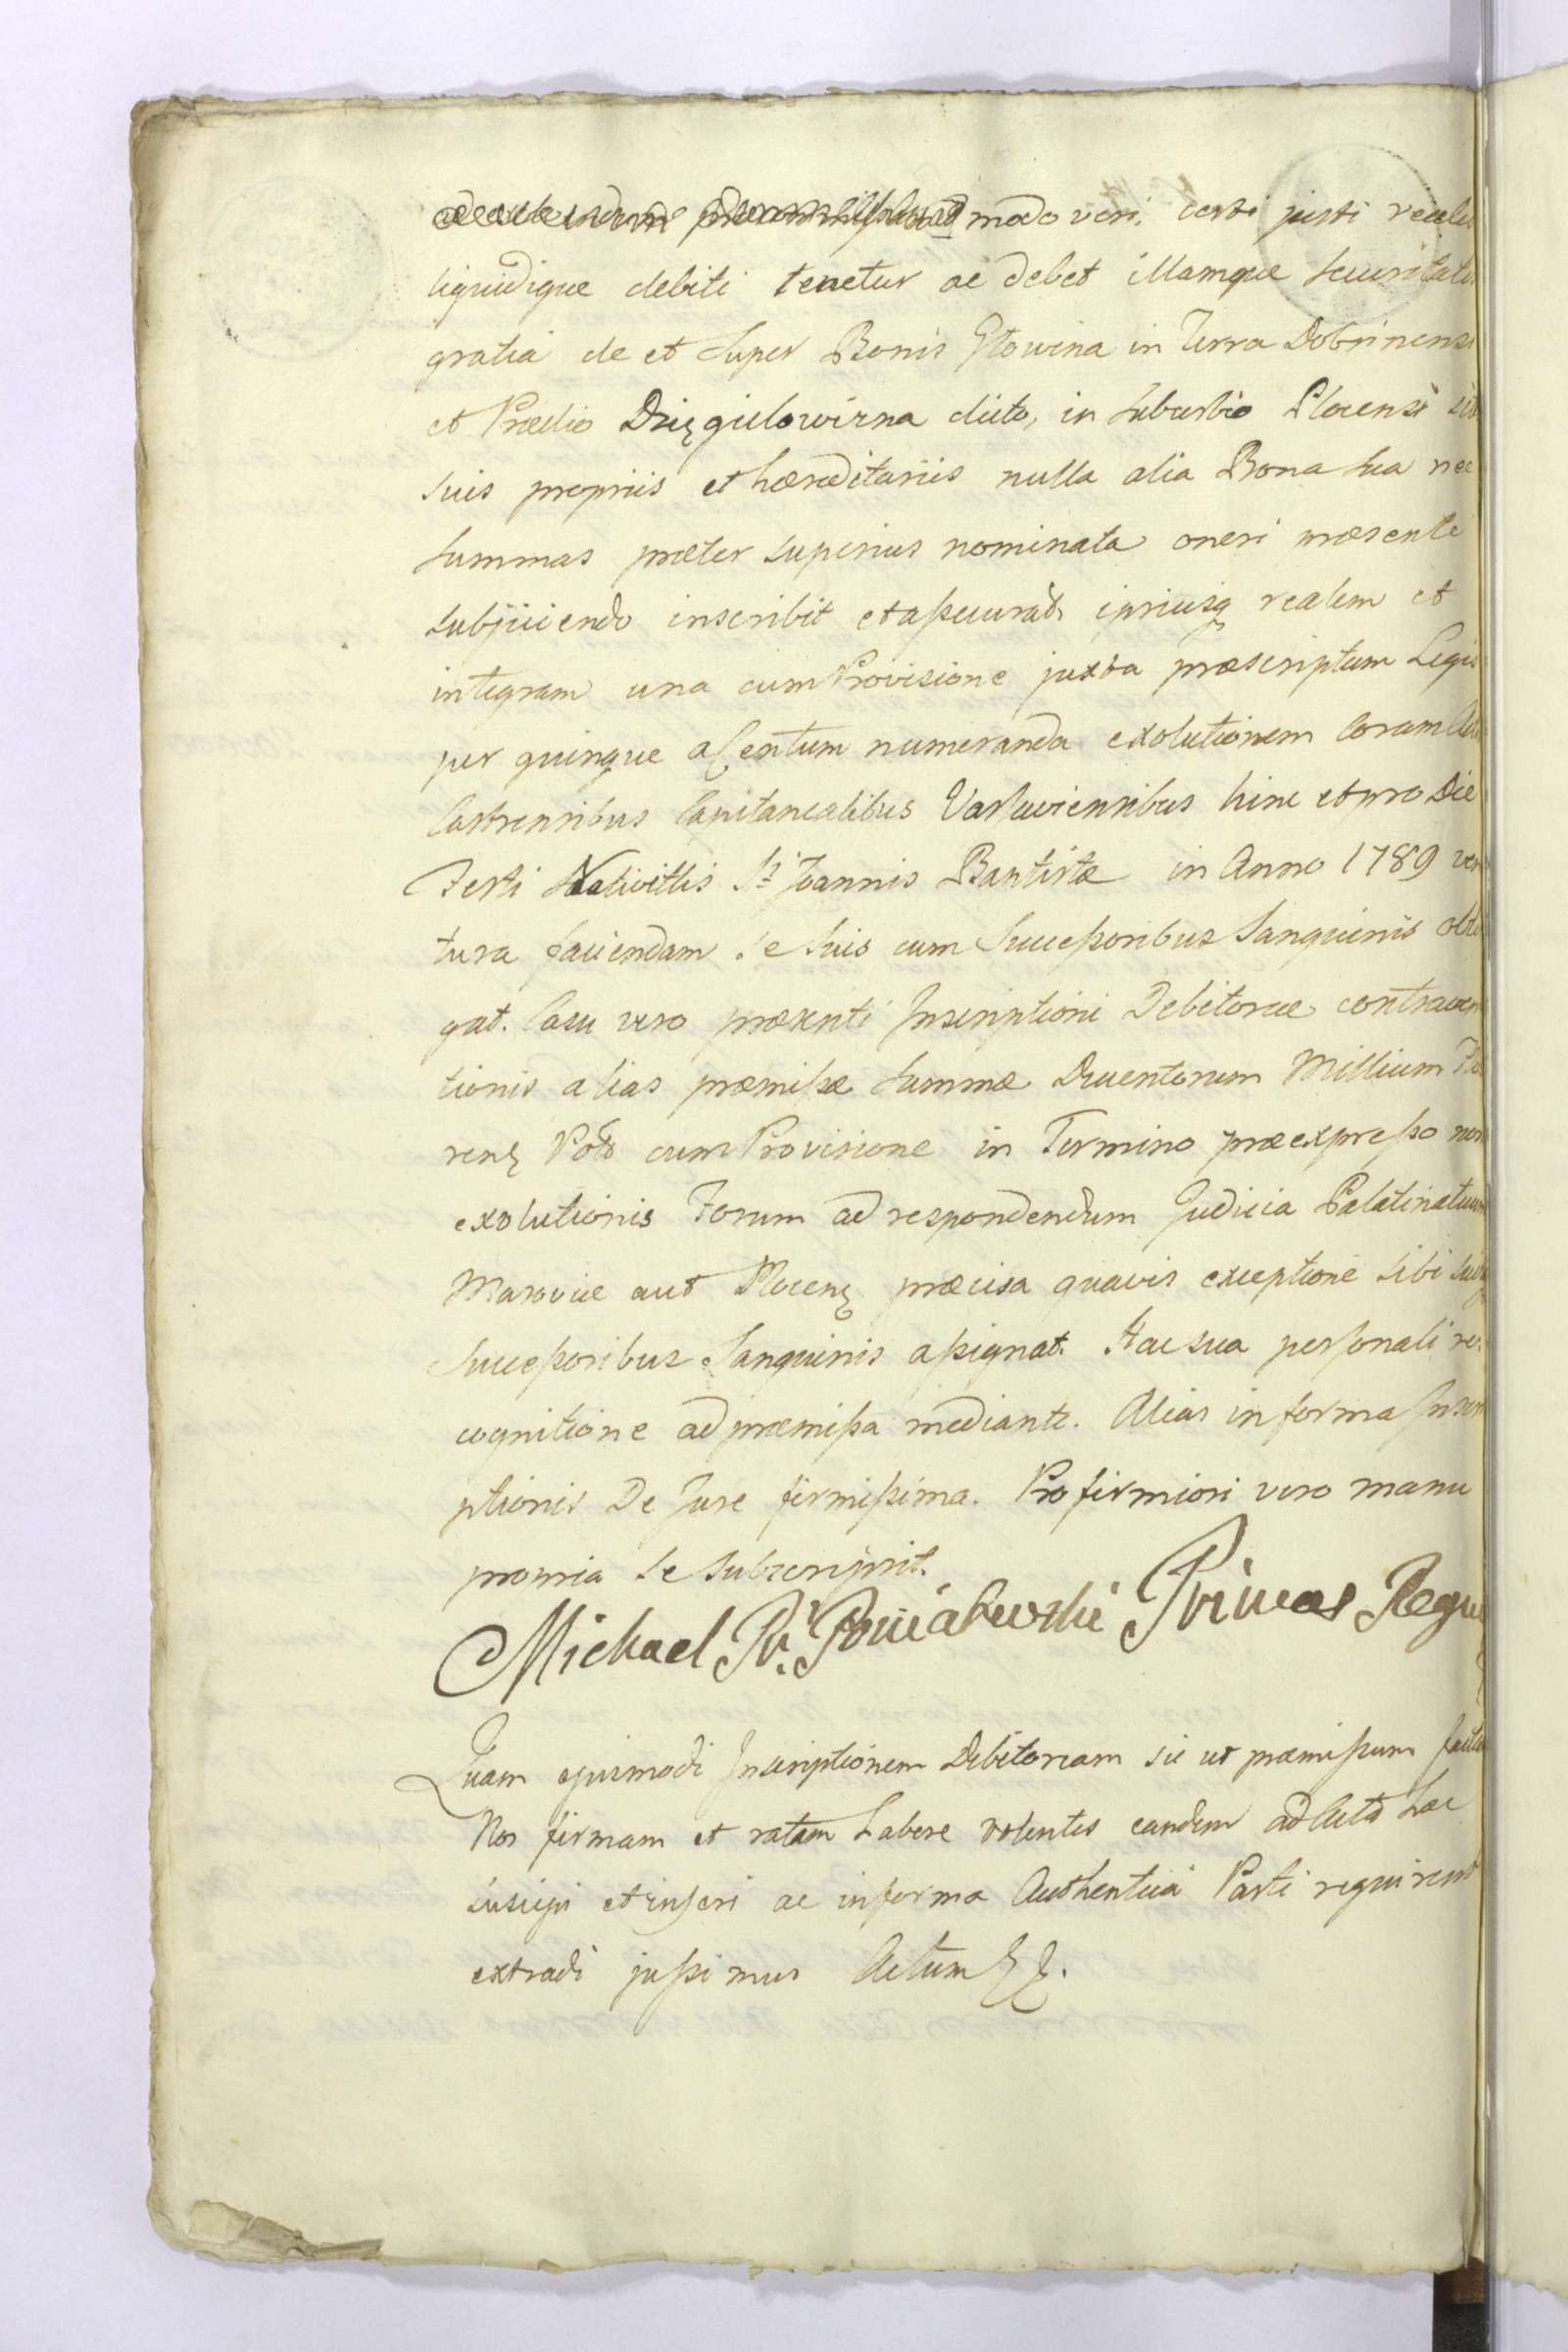 modo veri, certi justi realis
liquidique debiti tenetur ac debet illamque securitatis
gratia de et super Bonis Głowina in Terra Dobrinensi
et Prædio Dzięgielowizna dicto, in suburbio Plocensi
suis propriis et hæreditariis nulla alia Bona sua nec
summas præter superius nominata oneri præsente
subjiciendo inscribit et assecurat, ipsiusq realem et
integram una cum Provisione juxta præscriptum Legis
per quinque a Centum numeranda exolutionem Coram
Castrensibus Capitanealibus Varsaviensibus hinc et pro Die
Festi Nativittis Sti Joannis Baptistæ in Anno 1789 ven
tura faciendam se suis cum Successoribus Sanguinis obli
gat. Casu vero præsenti Inscriptioni Debitoriæ contraven
tionis alias præmissæ summæ Ducentorum Millium Flo
reng Polo cum Provisione in Termino præexpresso non
exolutionis Forum ad respondendum Judicia Palatinatuum
Masoviæ aut Ploceng præcisa quavis exceptione sibi suisq
Successoribus Sanguinis assignat. Hac sua personali re,
cognitione ad præmissa mediante. Alias in forma Inscri
ptionis De Jure firmissima. Pro firmiori vero manu
propria se subscripsit.
Michael Pr. Poniatowski Primas Regni
Quam ejusmodi Inscriptionem Debitoriam sic ut præmissum
Nos firmam et ratam habere volentes eandem ad Acta hæc
suscipi et inseri ac in forma Authentica Parti requirenti
extradi jussimus Actum